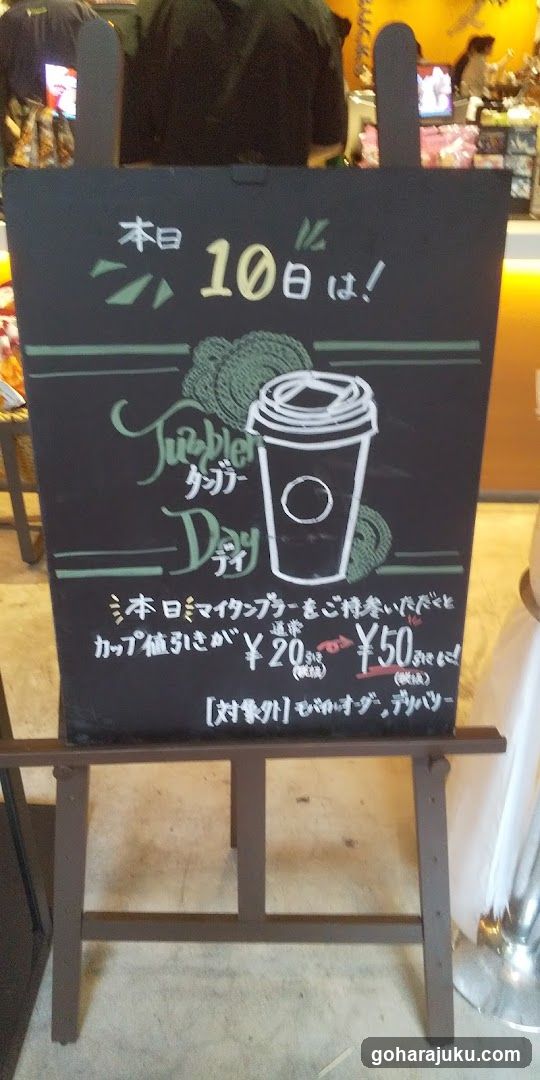 本日 10日は!
Tumbler
タンブラー
Day
デイ
本日 マイタンブラーをご持参いただくと
カップ値引きが 通常 ¥20引き (税抜) → ¥50引きに! (税抜)
[対象外] モバイルオーダー、デリバリー
goharajuku.com